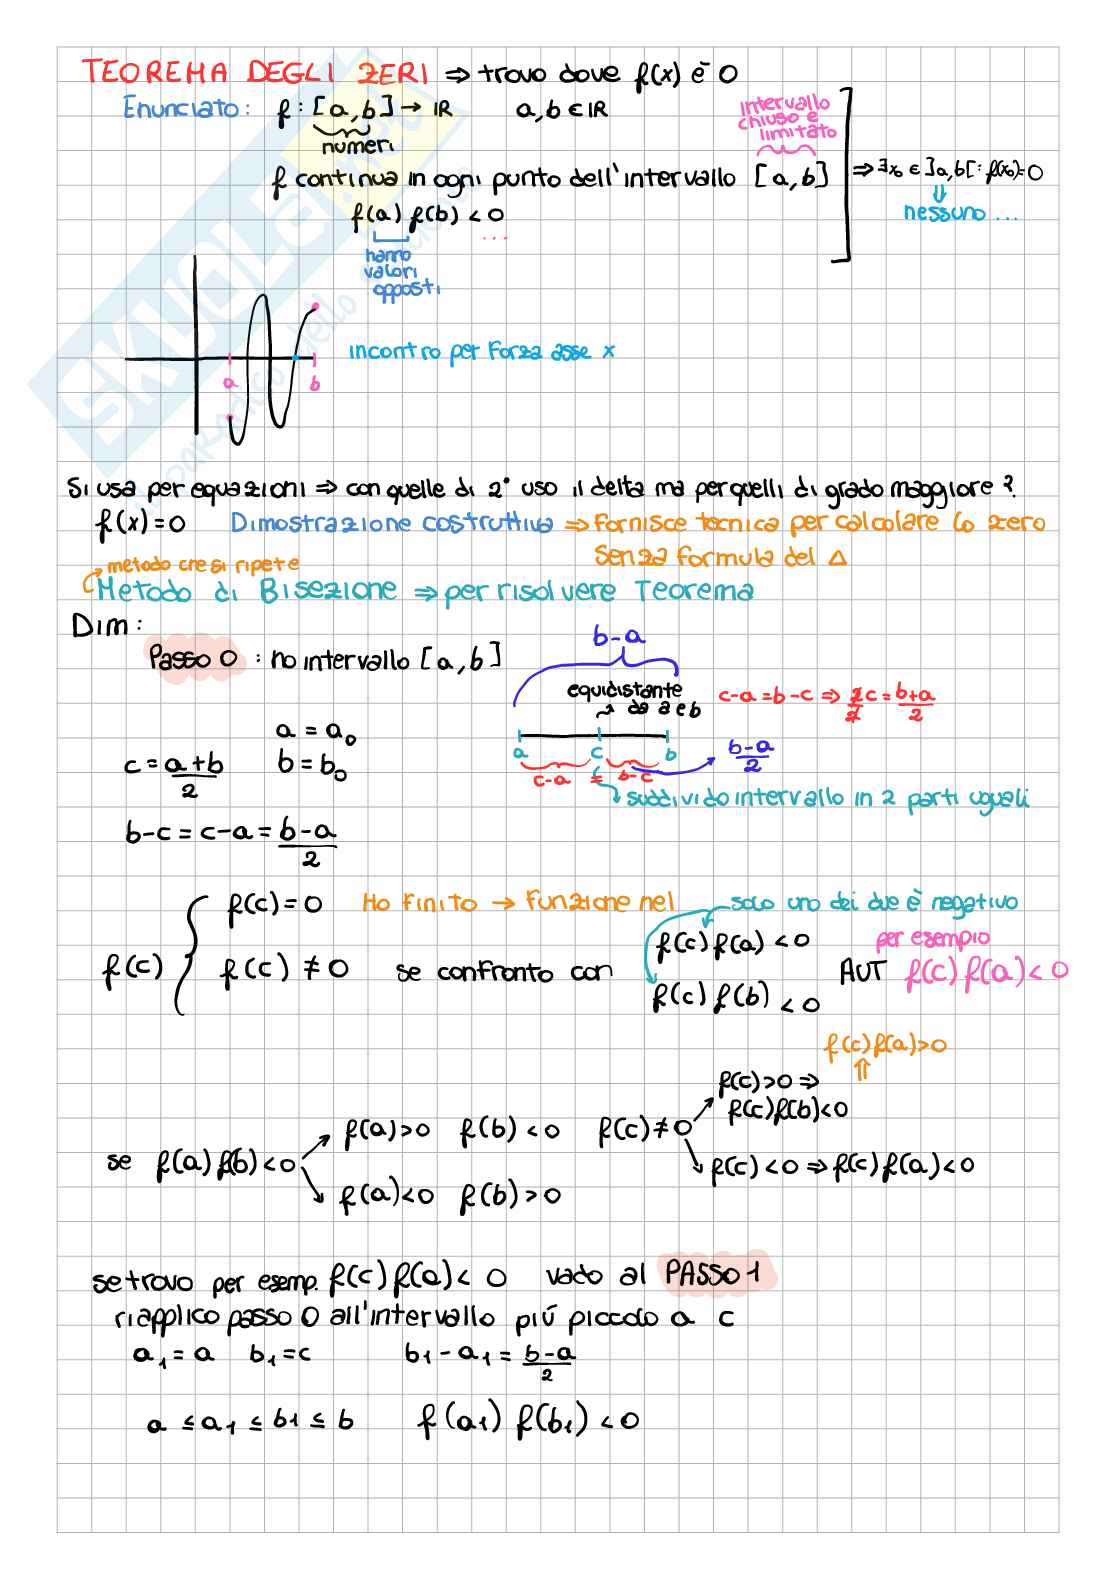 TEOREMA DEGLI ZERI ⇒ trovo dove f(x) è 0
Enunciato: f: [a,b] → IR a,b ∈ IR
numeri
intervallo
chiuso e
limitato
f continua in ogni punto dell'intervallo [a,b] ⇒ ∃x₀ ∈ ]a,b[ : f(x₀)=0
nessuno ...
f(a) f(b) < 0
...
hanno
valori
opposti
a b
incontro per forza asse x
Si usa per equazioni ⇒ con quelle di 2° uso il delta ma per quelli di grado maggiore?
f(x)=0 Dimostrazione costruttiva ⇒ fornisce tecnica per calcolare lo zero
senza formula del Δ
metodo che si ripete
Metodo di Bisezione ⇒ per risolvere Teorema
Dim:
Passo 0 : ho intervallo [a,b]
b-a
equidistante
da a e b
c-a = b-c ⇒ 2c/2 = b+a/2
a c b
c-a = b-c
b-a/2
suddivido intervallo in 2 parti uguali
a = a₀
c = a+b/2 b = b₀
b-c = c-a = b-a/2
f(c) { f(c) = 0 Ho finito → funzione nel
solo uno dei due è negativo
f(c) ≠ 0 se confronto con
f(c) f(a) < 0
f(c) f(b) < 0
per esempio
AUT f(c) f(a) < 0
f(c) f(a) > 0
⇑
f(c) > 0 ⇒
f(c) f(b) < 0
f(a) > 0 f(b) < 0 f(c) ≠ 0
se f(a) f(b) < 0
f(c) < 0 ⇒ f(c) f(a) < 0
f(a) < 0 f(b) > 0
se trovo per esemp. f(c) f(a) < 0 vado al PASSO 1
riapplico passo 0 all'intervallo più piccolo a c
a₁ = a b₁ = c b₁ - a₁ = b-a/2
a ≤ a₁ ≤ b₁ ≤ b f(a₁) f(b₁) < 0
SKUOLA.net